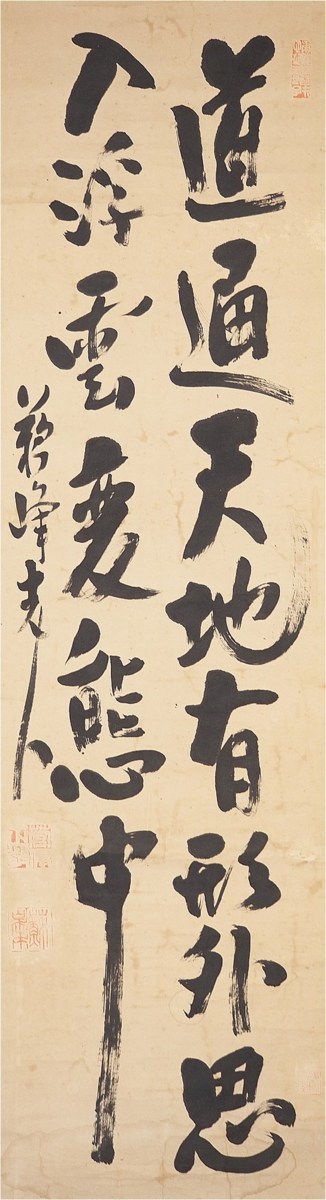 道通天地有形外思
入浮雲変態中
蘇峰老人